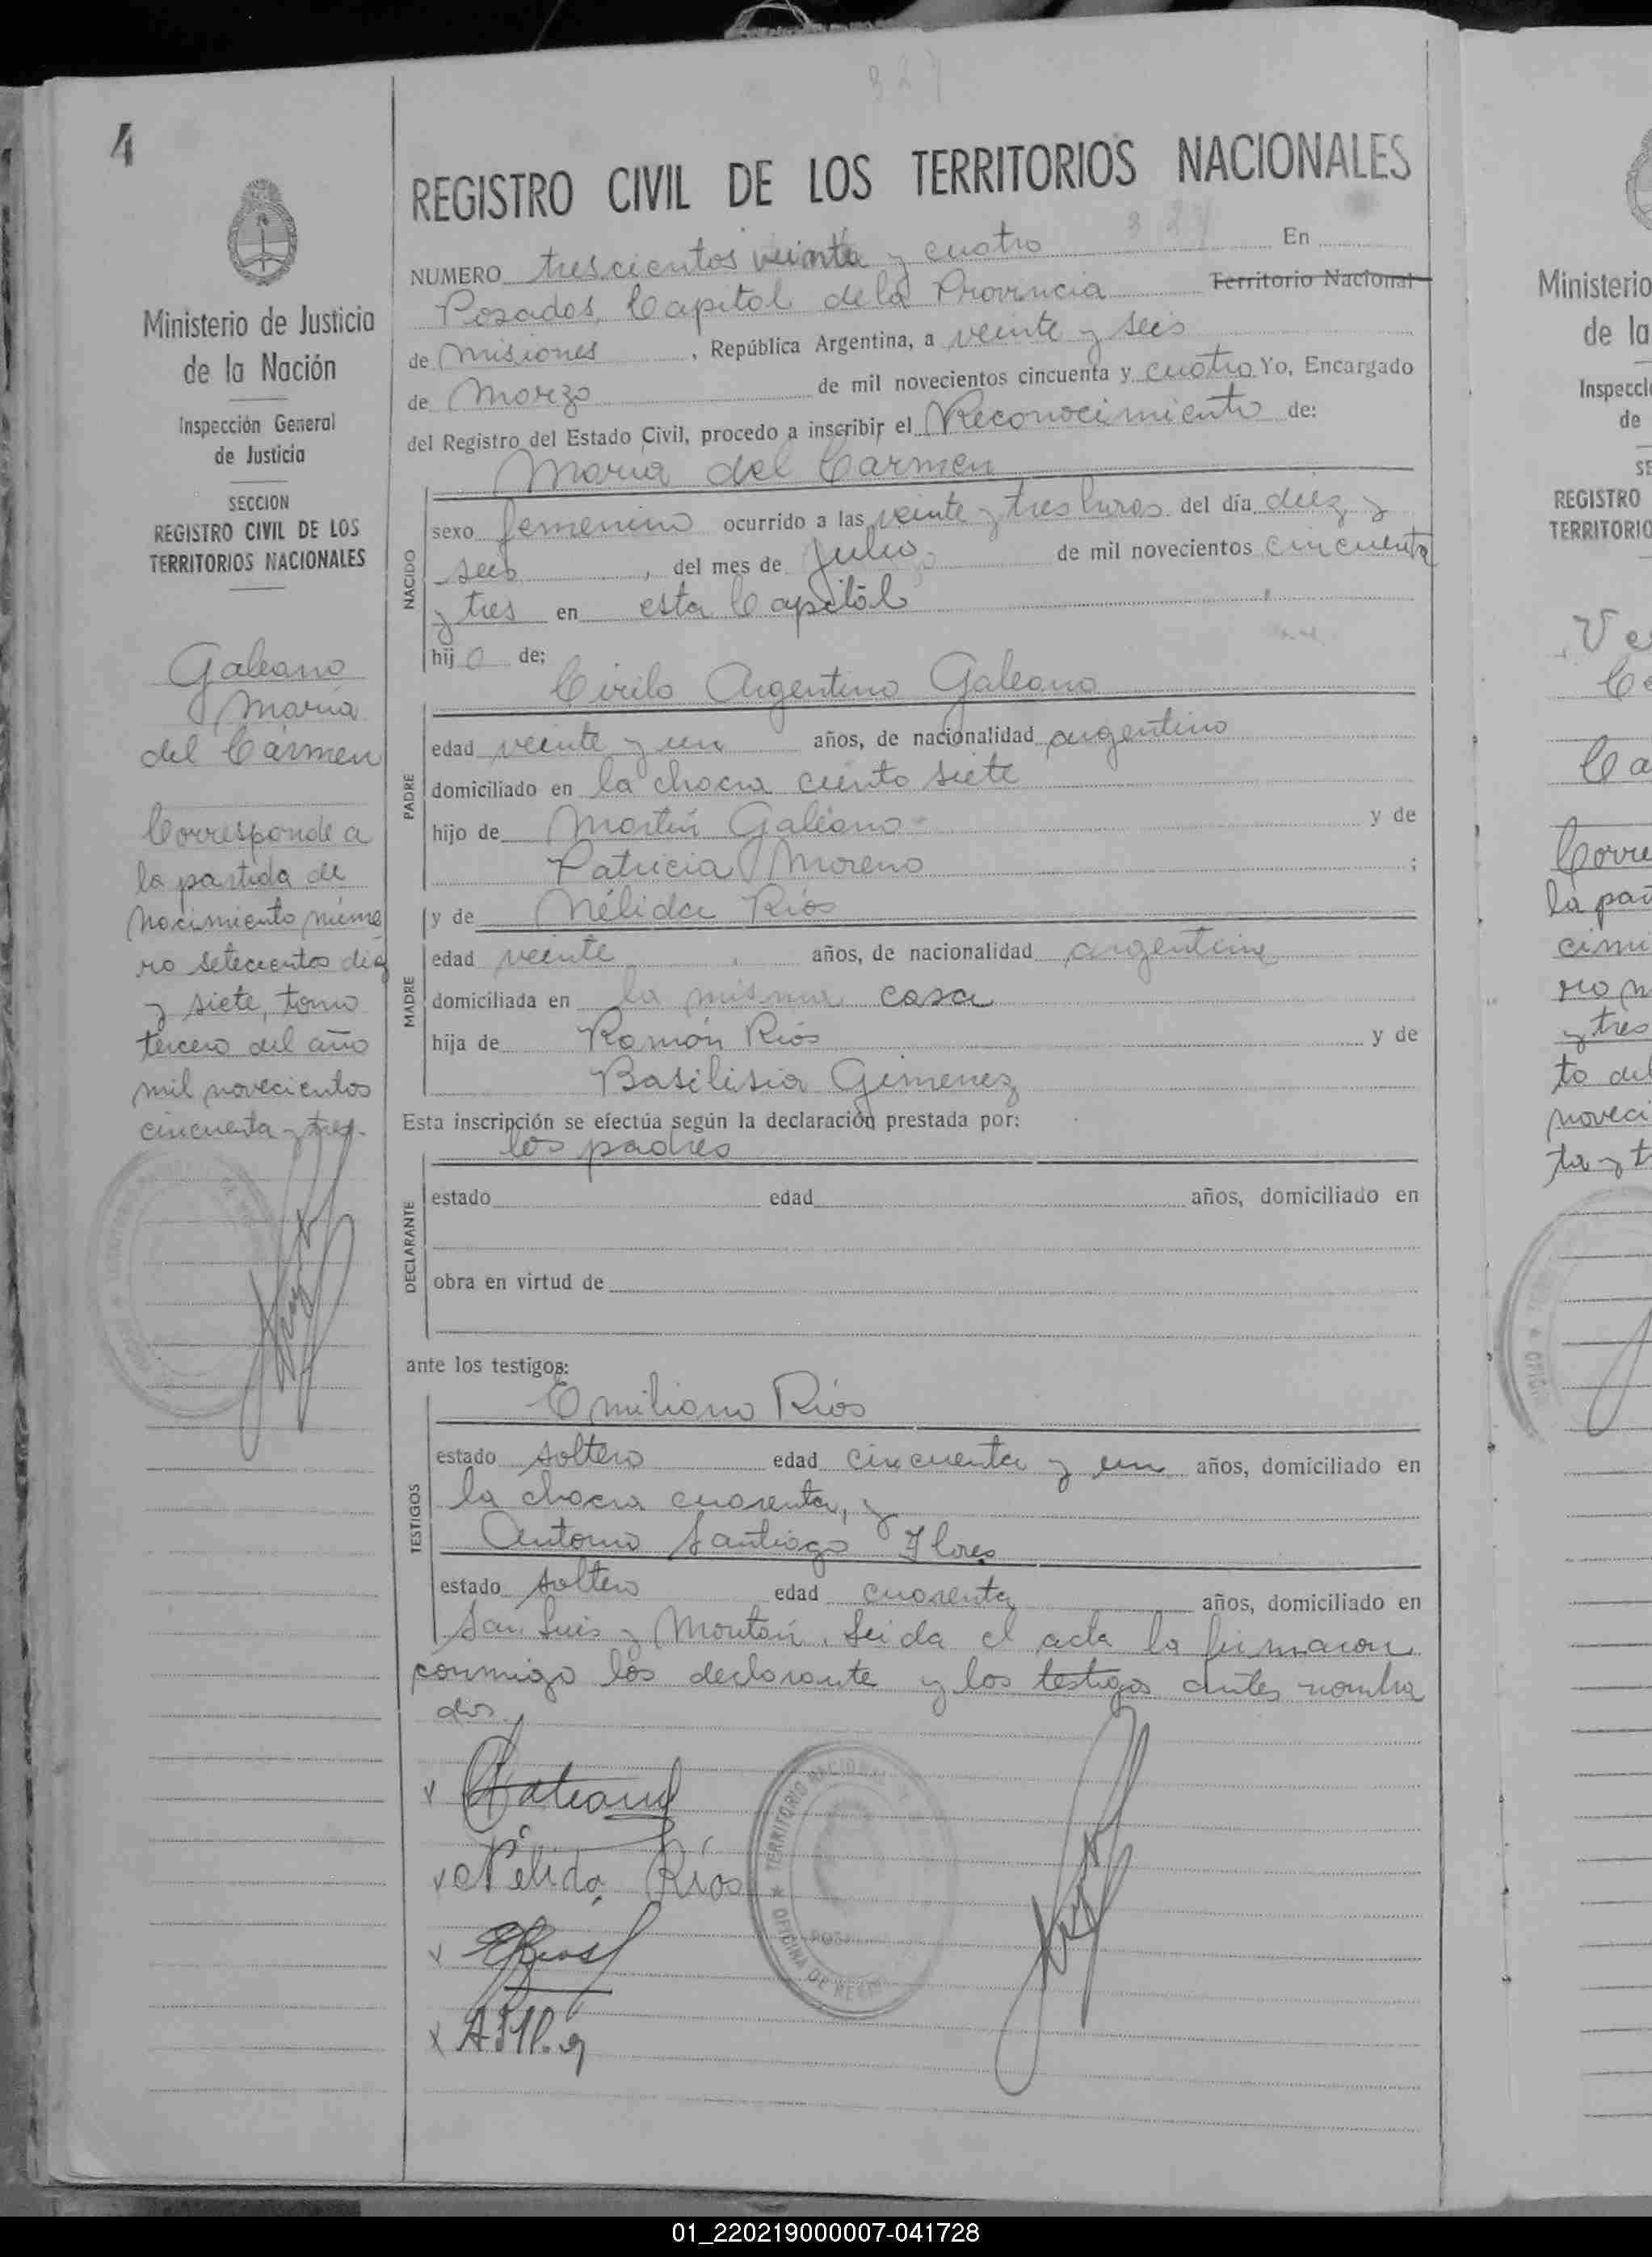 327
4
REGISTRO CIVIL DE LOS TERRITORIOS NACIONALES
NUMERO trescientos veinte y cuatro 327 En
Posadas, Capital de la Provincia Territorio Nacional
de Misiones, República Argentina, a veinte y seis
de Marzo de mil novecientos cincuenta y cuatro Yo, Encargado
del Registro del Estado Civil, procedo a inscribir el Reconocimiento de:
María del Carmen
NACIDO
sexo femenino ocurrido a las veinte y tres horas del día diez y
seis, del mes de Julio de mil novecientos cincuenta
y tres en esta Capital
hija de:
Cirilo Argentino Galeano
PADRE
edad veinte y un años, de nacionalidad argentino
domiciliado en la chacra ciento siete
hijo de Martín Galeano y de
Patricia Moreno;
y de Nélida Ríos
MADRE
edad veinte años, de nacionalidad argentina
domiciliada en la misma casa
hija de Ramón Ríos y de
Basilisia Gimenez
Esta inscripción se efectúa según la declaración prestada por:
los padres
DECLARANTE
estado edad años, domiciliado en
obra en virtud de
ante los testigos:
Emiliano Ríos
TESTIGOS
estado soltero edad cincuenta y un años, domiciliado en
la chacra cuarenta, y
Antonio Santiago Flores
estado soltero edad cuarenta años, domiciliado en
San Luis y Montañ. Leida el acta la firmaron
conmigo los declarante y los testigos antes nombra
dos.
Galeano
Nélida Ríos
ERios
TERRITORIO NACIONAL
OFICINA DE
Ministerio de Justicia
de la Nación
Inspección General
de Justicia
SECCION
REGISTRO CIVIL DE LOS
TERRITORIOS NACIONALES
Galeano
María
del Cármen
Corresponde a
la partida de
nacimiento núme
ro setecientos diez
y siete, tomo
tercero del año
mil novecientos
cincuenta y tres.
Ministerio
de la
Inspecci
de
SE
REGISTRO
TERRITORIO
Ve
Ca
Corre
la par
cimi
ro n
y tres
to del
noveci
ta y t
01_220219000007-041728